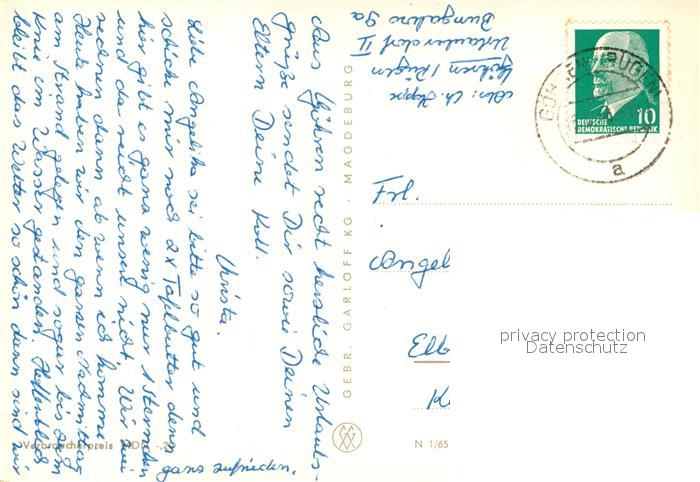 Aus Göhren recht herzliche Urlaubs-
grüße sendet Dir sowie Deinen
Eltern Deine Koll.
Christa.
Liebe Angelika sei bitte so gut und
schicke mir noch 2x Tafelbutter denn
hier gibt es ganz wenig nur 1 Sternchen
und da reicht unsere nicht. Wir
rechnen dann ab wenn ich komme
Heute haben wir den ganzen Nachmittag
am Strand gelegen und sogar bis zum
Knie im Wasser gestanden. Hoffentlich
bleibt das Wetter so schön dann sind wir
ganz zufrieden.
Verbraucherpreis MDN -,20
GEBR. GARLOFF KG · MAGDEBURG
N 1/65
Abs: Ch. Hoppe
Göhren / Rügen
Urlauberdorf II
Bungalow 9a
GÖHREN (RÜGEN)
a
10
DEUTSCHE
DEMOKRATISCHE REPUBLIK
Frl.
Angel
Elb
K
privacy protection
Datenschutz